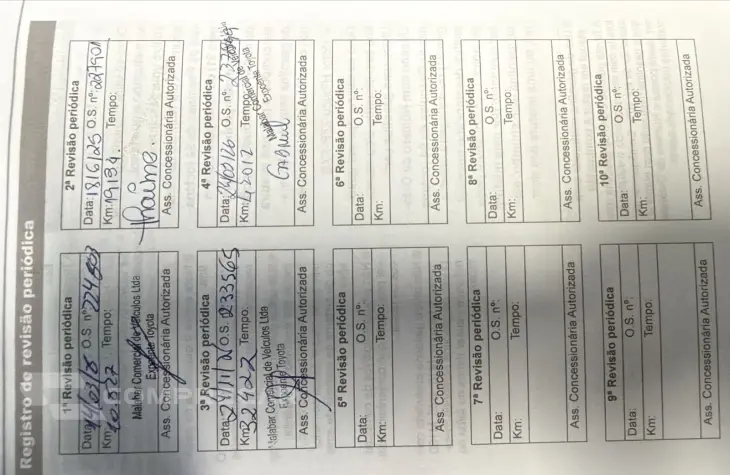 Registro de revisão periódica
1ª Revisão periódica
Data: O.S. nº: 224803
Km: Tempo:
Malabar Comercial de Veículos Ltda
Toyota
Ass. Concessionária Autorizada
2ª Revisão periódica
Data: 18/6/25 O.S. nº: 227901
Km: 19134. Tempo:
Ass. Concessionária Autorizada
3ª Revisão periódica
Data: 24/11/25 O.S. 233565
Km: 32422 Tempo:
Malabar Comercial de Veículos Ltda
Toyota
Ass. Concessionária Autorizada
4ª Revisão periódica
Data: O.S. nº:
Km: 42012 Tempo:
Malabar Comercial de
Toyota
Gabriel
Ass. Concessionária Autorizada
5ª Revisão periódica
Data: O.S. nº:
Km: Tempo:
Ass. Concessionária Autorizada
6ª Revisão periódica
Data: O.S. nº:
Km: Tempo:
Ass. Concessionária Autorizada
7ª Revisão periódica
Data: O.S. nº:
Km: Tempo:
Ass. Concessionária Autorizada
8ª Revisão periódica
Data: O.S. nº:
Km: Tempo:
Ass. Concessionária Autorizada
9ª Revisão periódica
Data: O.S. nº:
Km: Tempo:
Ass. Concessionária Autorizada
10ª Revisão periódica
Data: O.S. nº:
Km: Tempo:
Ass. Concessionária Autorizada